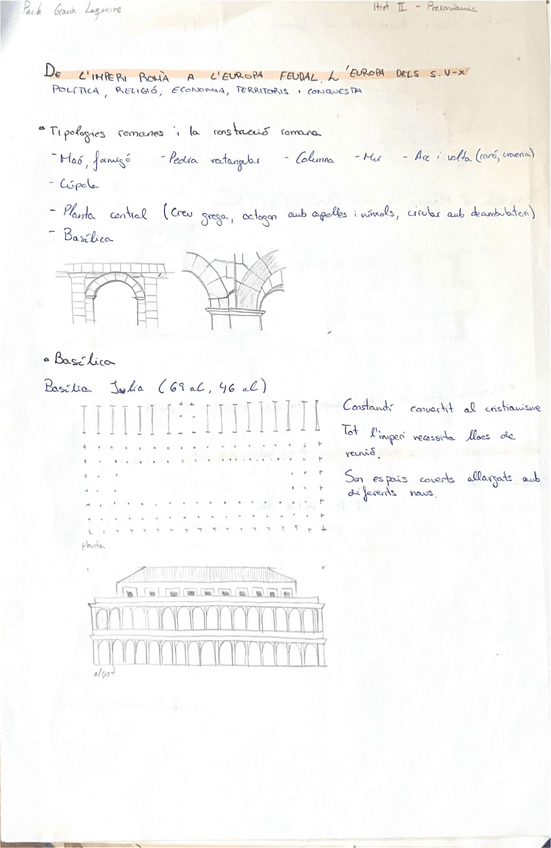 Hist II - Preromànic
DE L'IMPERI ROMÀ A L'EUROPA FEUDAL. L'EUROPA DELS S.V-X
POLÍTICA, RELIGIÓ, ECONOMIA, TERRITORIS I CONQUESTA
• Tipologies romanes i la construcció romana
- Maó, formigó - Pedra rectangular - Columna - Mur - Arc i volta (canó, creueria)
- Cúpula
- Planta central (Creu grega, octogon amb capelles i nínxols, circular amb deambulatori)
- Basílica
• Basílica
Basílica Julia (69 aC, 46 aC)
Constantí convertit al cristianisme
Tot l'imperi necessita llocs de
reunió.
Son espais coverts allargats amb
diferents naus.
planta
alçat